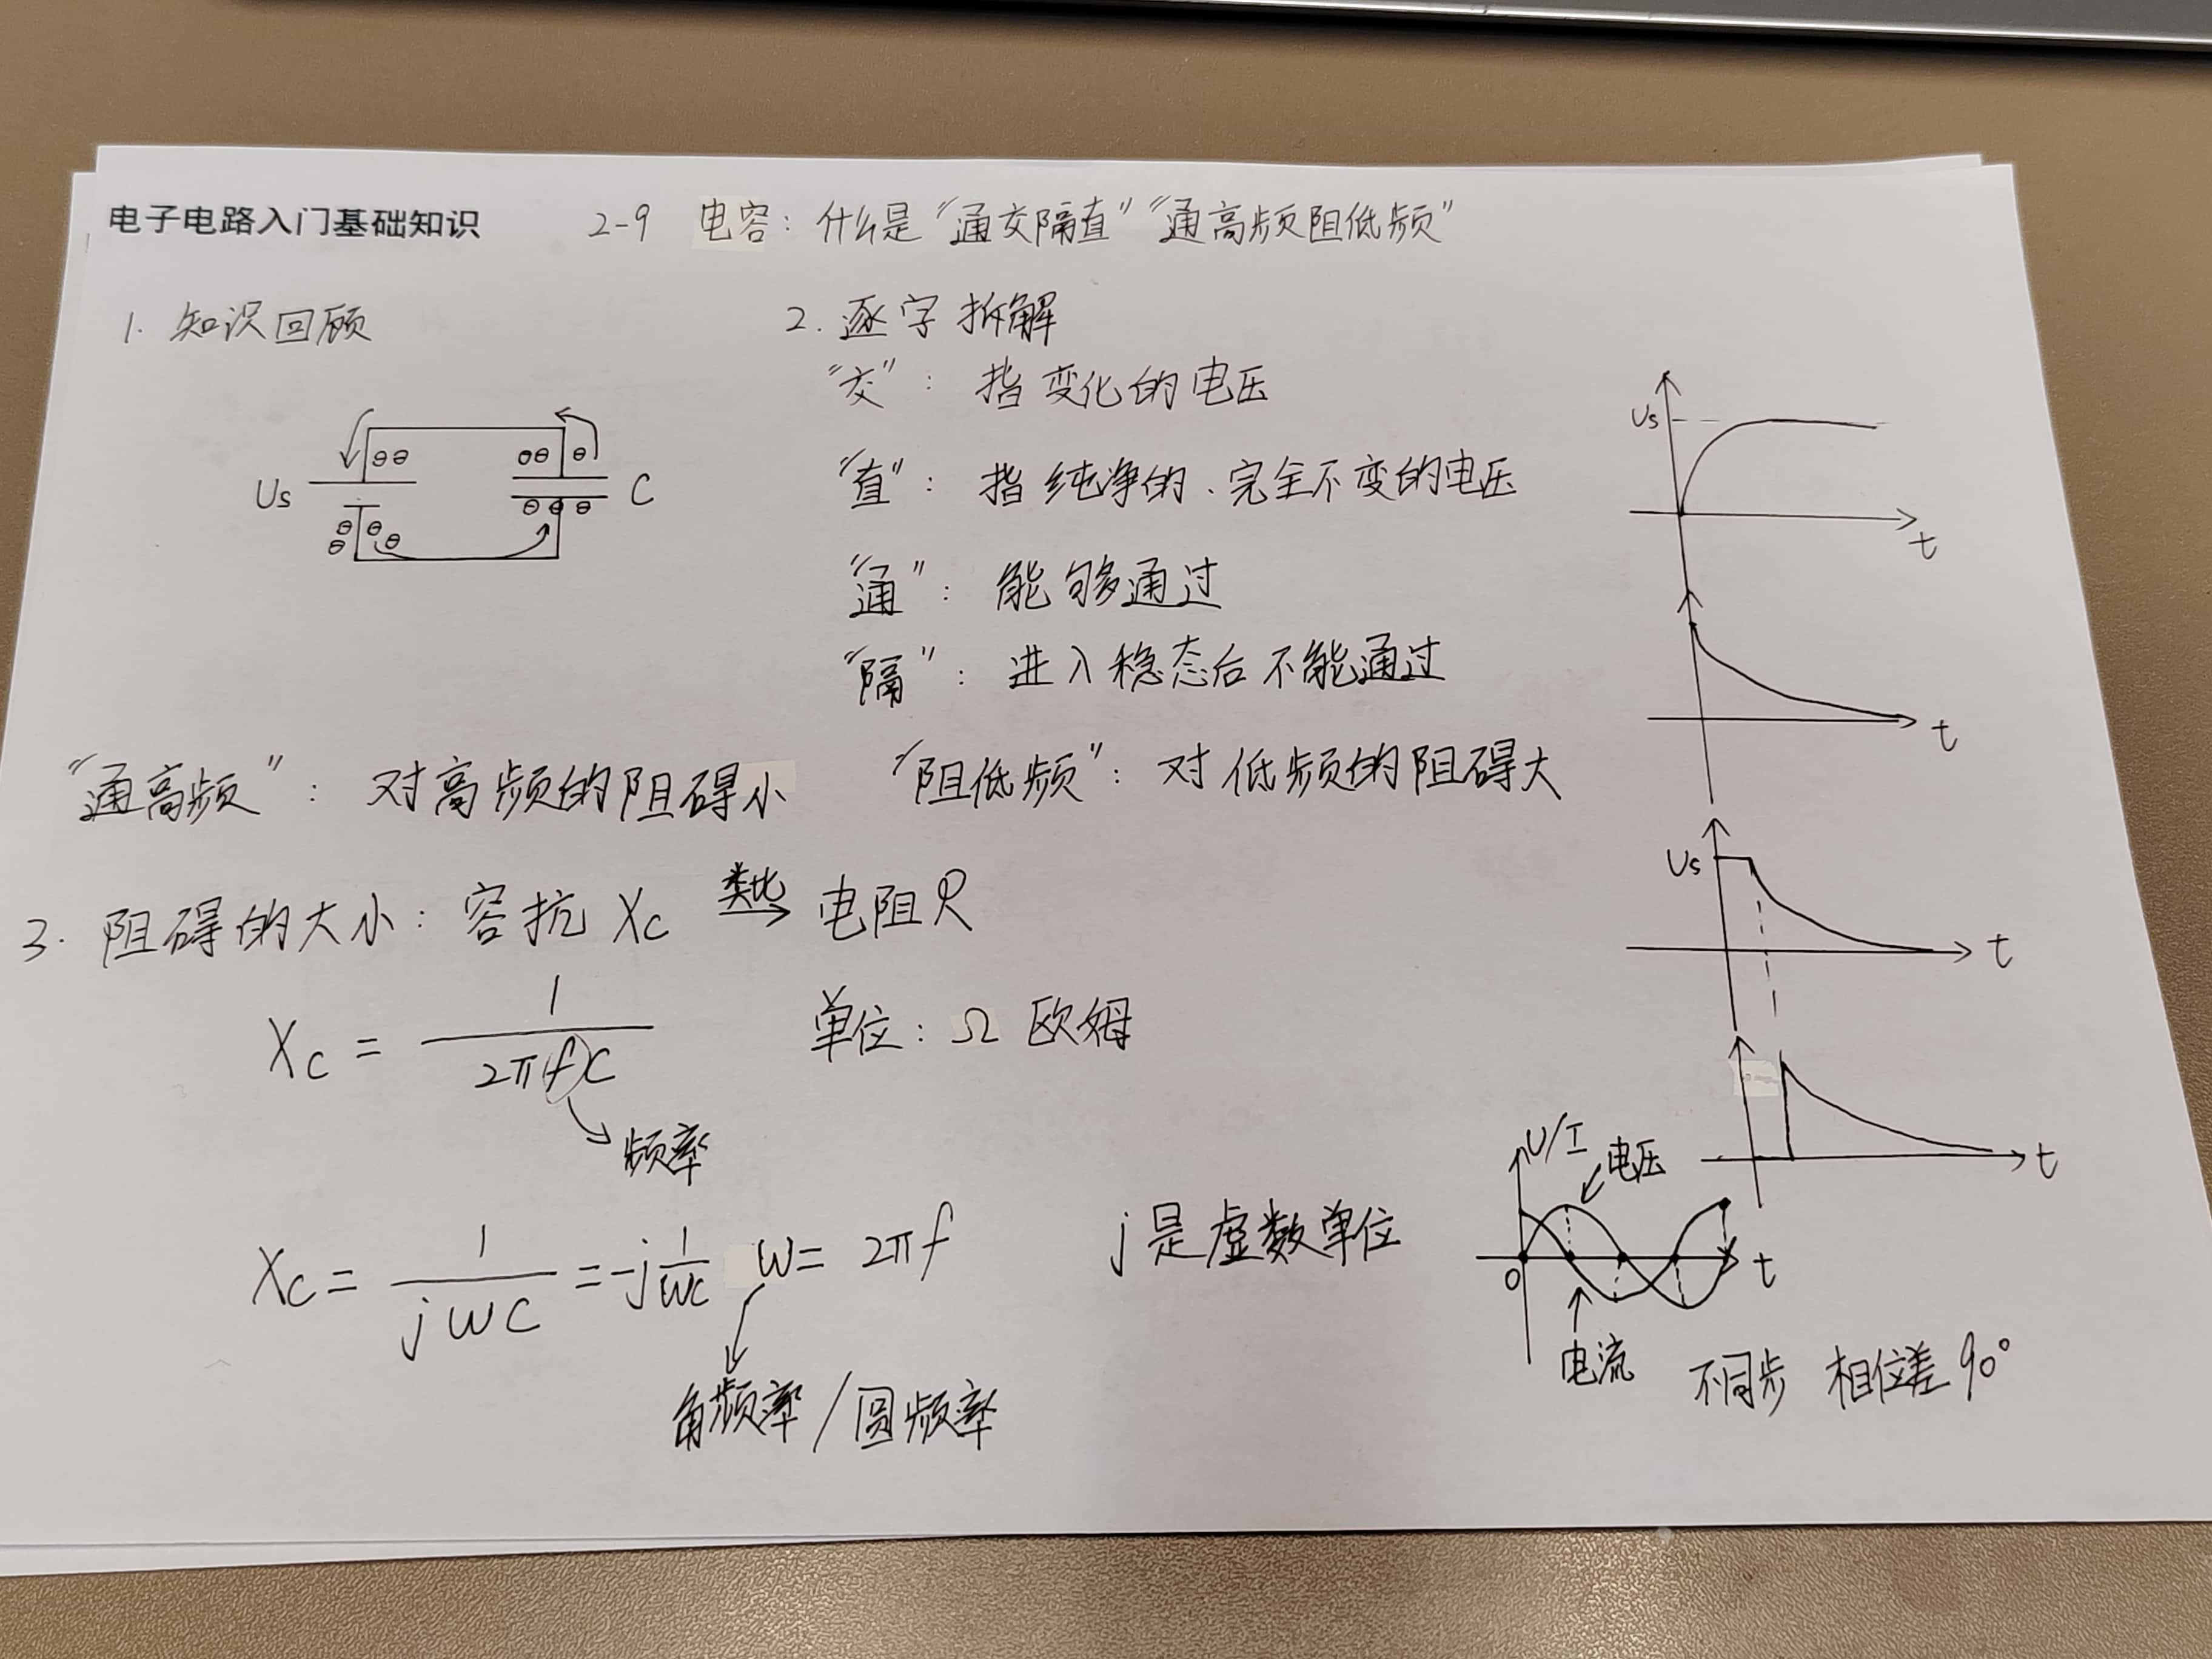 电子电路入门基础知识 2-9 电容：什么是“通交隔直”“通高频阻低频”
1. 知识回顾
Us
C
2. 逐字拆解
“交”：指变化的电压
“直”：指纯净的、完全不变的电压
“通”：能够通过
“隔”：进入稳态后不能通过
“通高频”：对高频的阻碍小 “阻低频”：对低频的阻碍大
3. 阻碍的大小：容抗 Xc 类比→ 电阻R
Xc = 1/(2πfC) 单位：Ω 欧姆
频率
Xc = 1/(jωC) = -j 1/(ωC) ω = 2πf j是虚数单位
角频率/圆频率
Us
t
t
Us
t
t
U/I
电压
0
t
电流 不同步 相位差90°